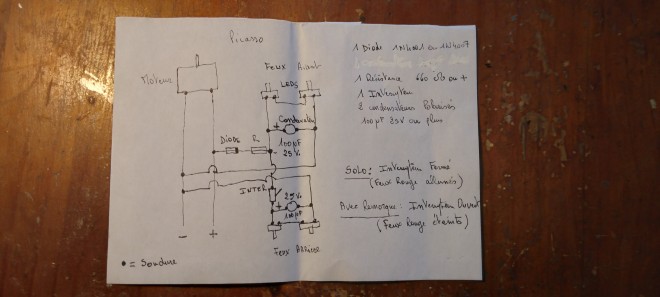 Picasso
Moteur
Feux Avant
LEDS
+ Condensateur
100µF
25V
-
Diode R
INTER
+
25V
100µF
Feux ARRière
- +
• = Soudure
1 Diode 1N4001 ou 1N4007
1 Résistance 460 ou +
1 Interrupteur
2 condensateurs Polarisés
100µF 25V ou plus
SOLO: Interrupteur Fermé
(Feux Rouge allumés)
Avec Remorque: Interrupteur Ouvert
(Feux Rouge éteints)